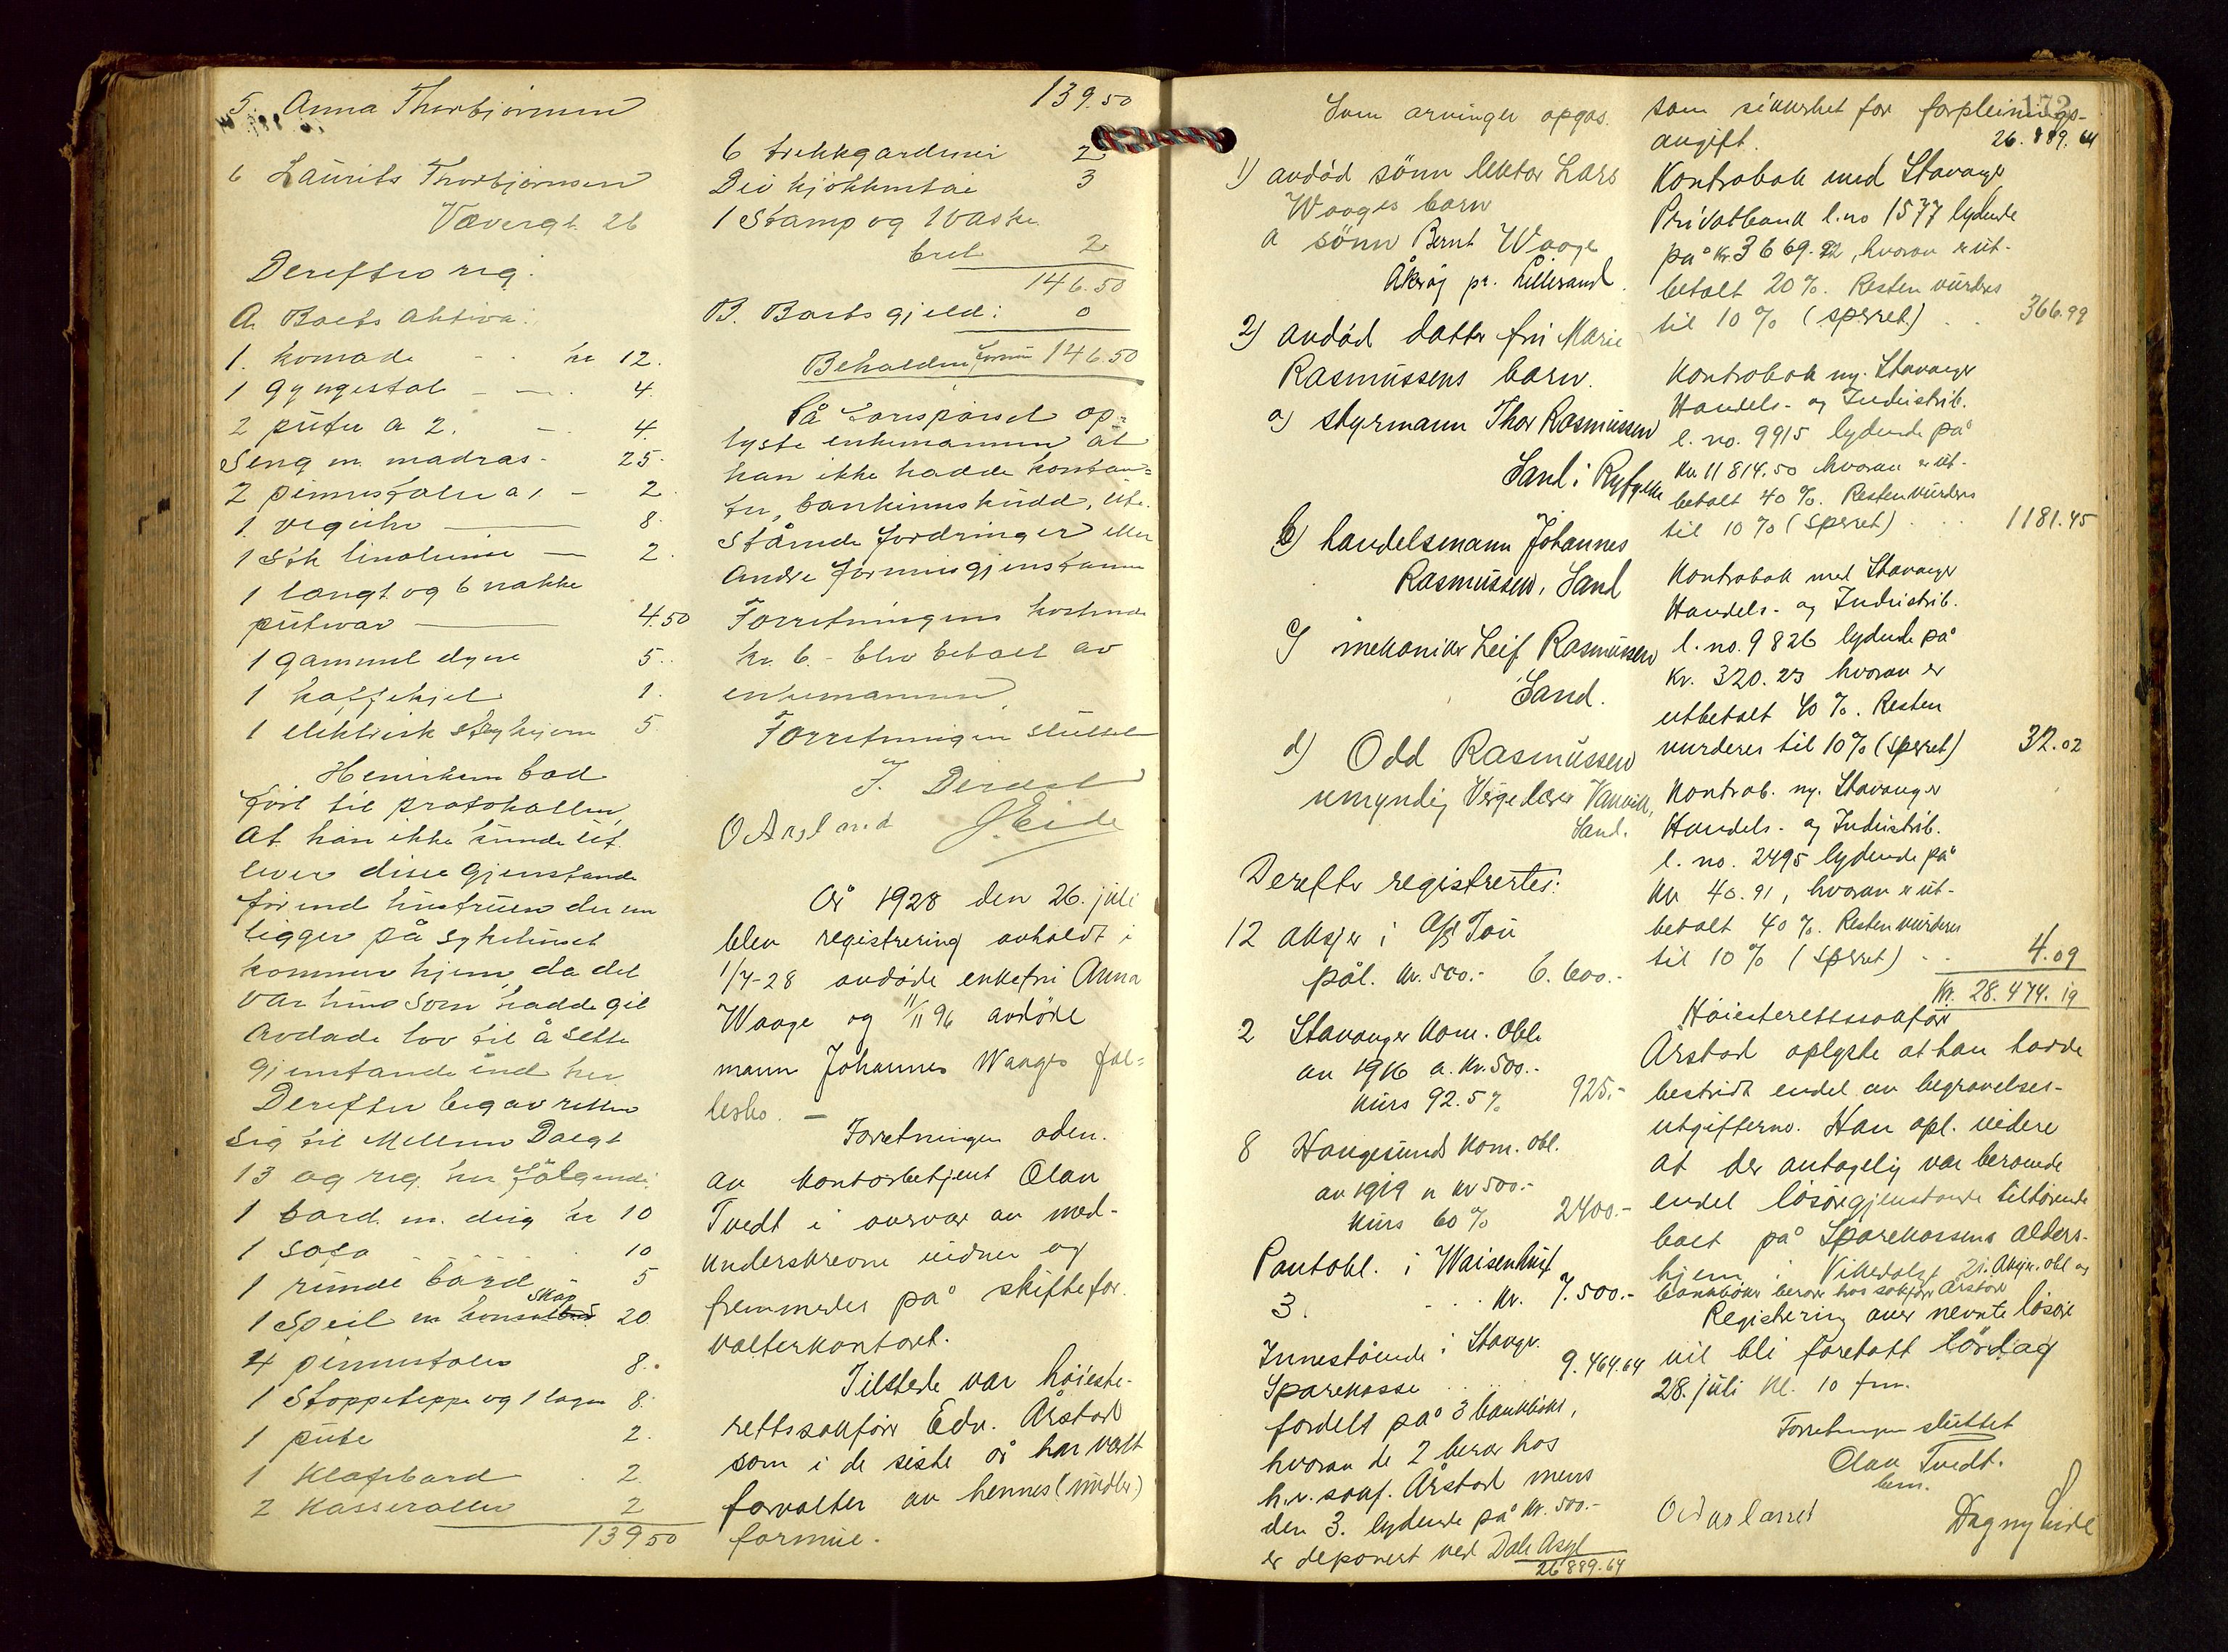 5. Anna Thorbjörnsen
6 Laurits Thorbjörnsen
Vævergt. 26
Derefter reg:
A. Boets Aktiva:
1. komode - - kr 12.
1 gyngestol - - 4.
2 puter a 2. - 4.
Seng m. madras - 25.
2 pinnestoler a 1 - 2.
1. veguhr - 8.
1 Stk linoleum - 2.
1 langt og 6 nakke
putevar 4.50
1 gammel dyne 5.
1 kaffekjel 1.
1 elektrisk strykjern 5
Henriksen bad
fört til protokollen,
at han ikke kunde ut
lever disse gjenstande
förend hustruen der nu
ligger på sykehuset
kommer hjem, da det
var hun som hadde git
avdøde lov til å sette
gjenstande ind her
Derefter begav retten
sig til Mellem Dalgt
13 og reg. her fölgende:
1 bord m. dug kr 10
1 Sofa - - - - 10
1 runde bord 5
1 Speil m konsol skap 20
4 pinnestoler 8.
1 Stoppeteppe og 1 lagen 8.
1 pute 2.
1 Klafebord 2.
2 Kasseroller 2
139 50
139.50
6 trekkgardiner 2
Div kjökkentöi 3
1 Stamp og 1 vaske
bret 2
146.50
B. Boets gjeld: 0
Beholden formue 146.50
På forespörsel op-
lyste enkemannen at
han ikke hadde kontan-
ter, bankinnskudd, ute-
stående fordringer eller
andre formuesgjenstande
Forretningens kostende
kr. 6.- blev betalt av
enkemannen
Forretningen sluttet
O Arsland J. Eide
År 1928 den 26. juli
blev registrering avholdt i
1/7-28 avdöde enkefru Anna
Waage og 11/11 96 avdöde
mann Johannes Waages fæl-
lesbo. -
Forretningen adm.
av kontorbetjent Olav
Tvedt i overvær av med-
underskrevne vidner og
fremmedes på skiftefor-
valterkontoret.
Tilstede var höieste-
rettssakförer Edv. Årstad
som i de siste år har vært
forvalter av hennes (midler)
formue.
172
Som arvinger opgas.
1) avdöd sönn lektor Lars
Waages barn
a sönn Bernt Waage
Åkeröy pr. Lillesand.
2) avdöd datter fru Marie
Rasmussens barn.
a) styrmann Thor Rasmussen
Sand i Ryfylke
b) handelsmann Johannes
Rasmussen, Sand
c) mekaniker Leif Rasmussen
Sand.
d) Odd Rasmussen
umyndig Verge lærer Vanvik,
Sand.
Derefter registrertes:
12 aksjer i A/S Tou
pål. kr. 500.- 6.600.-
2 Stavanger Kom. obl.
av 1916 a. kr. 500.-
kurs 92.5 % 925.-
8 Haugesunds Kom. obl.
av 1919 a kr 500.-
kurs 60 % 2400.-
Pantobl. i Waisenhuset
3. - - - kr. 7.500.-
Innestående i Stavgr.
Sparekasse . . . 9.464.64
fordelt på 3 bankböker,
hvorav de 2 beror hos
h.r. sakf. Årstad mens
den 3. lydende på kr. 500.-
er deponert ved Dale Asyl
26 889.64
som sikkerhet for forpleinings-
avgift. 26.889.64
Kontrabok med Stavanger
Privatbank l. no 1577 lydende
på kr 3669.92, hvorav er ut-
betalt 20 %. Resten vurderes
til 10 % (sperret) . . 366.99
Kontrabok ny. Stavanger
Handels- og Industrib.
l. no. 9915 lydende på
kr. 11 814.50 hvorav er ut-
betalt 40 %. Resten vurderes
til 10 % (sperret) . . . 1181.45
Kontrabok med Stavanger
Handels- og Industrib.
l. no. 9826 lydende på
kr. 320.23 hvorav er
utbetalt 40 %. Resten
vurderes til 10 % (sperret) 32.02
Kontrab. ny. Stavanger
Handels- og Industrib.
l. no. 2495 lydende på
kr 40.91, hvorav er ut-
betalt 40 %. Resten vurderes
til 10 % (sperret) - - 4.09
Kr. 28.474.19
Höiesterettssakförer
Årstad oplyste at han hadde
bestridt endel av begravelses-
utgifterne. Han opl. videre
at der antagelig var beroende
endel lösöregjenstande tilhörende
boet på Sparekassens alders-
hjem i Vikedalgt 21. Aksjer. obl og
bankböker beror hos sakförer Årstad
Registrering over nevnte lösöre
vil bli foretatt lördag
28. juli kl. 10 fm.
Forretningen sluttet
Olav Tvedt.
bem.
Dagny Eide